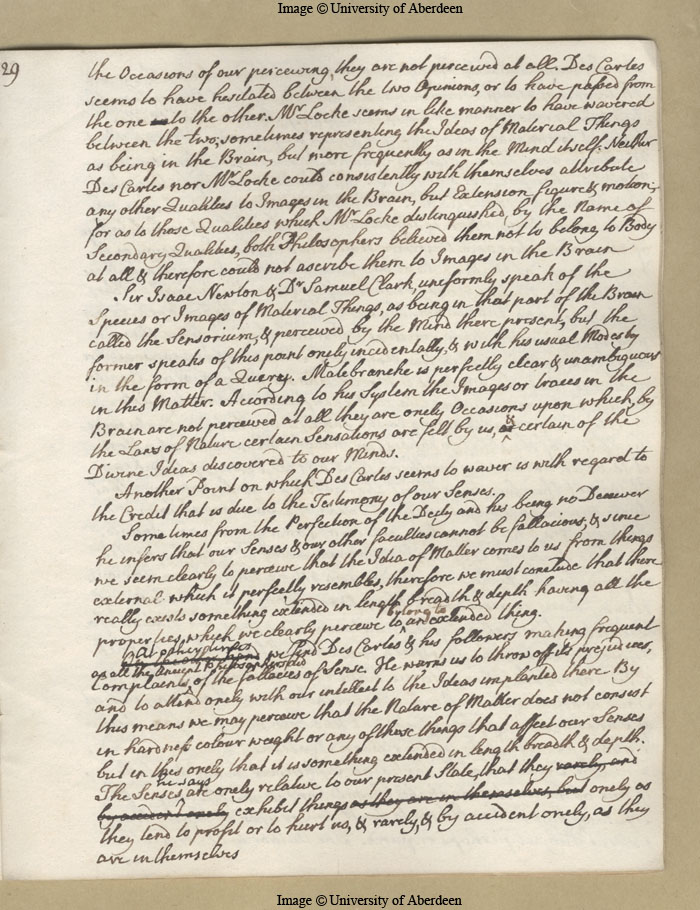 Image © University of Aberdeen
29
the Occasions of our perceiving, they are not perceived at all. Des Cartes
seems to have hesitated between the two Opinions, or to have passed from
the one to the other. Mr Locke seems in like manner to have wavered
between the two; sometimes representing the Ideas of Material Things
as being in the Brain, but more frequently as in the Mind itself. Neither
Des Cartes nor Mr Locke could consistently with themselves attribute
any other Qualities to Images in the Brain, but Extension figure & motion;
for as to those Qualities which Mr Locke distinguished, by the Name of
Secondary Qualities, both Philosophers believed them not to belong to Body
at all & therefore could not ascribe them to Images in the Brain
Sir Isaac Newton & Dr Samuel Clark, uniformly speak of the
Species or Images of Material Things, as being in that part of the Brain
called the Sensorium, & perceived by the Mind there present, but the
former speaks of this point onely incidentally, & with his usual Modesty
in the form of a Querey. Malebranche is perfectly clear & unambiguous
in this Matter. According to his System the Images or traces in the
Brain are not perceived at all they are onely Occasions upon which, by
the Laws of Nature certain Sensations are felt by us, & certain of the
Divine Ideas discovered to our Minds.
Another Point on which Des Cartes seems to waver is with regard to
the Credit that is due to the Testimony of our Senses.
Sometimes from the Perfection of the Deity and his being no Deceiver
he infers that our Senses & our other faculties cannot be fallacious, & since
we seem clearly to perceive that the Idea of Matter comes to us from things
external which it perfectly resembles, therefore we must conclude that there
really exists something extended in length breadth & depth having all the
properties, which we clearly perceive to belong to an extended thing.
At other times
we find Des Cartes & his followers making frequent
as all the Ancient Philosophers did
Complaints of the fallacies of Sense. He warns us to throw off its prejudices,
and to attend onely with our intellect to the Ideas implanted there By
this means we may perceive that the Nature of Matter does not consist
in hardness colour weight or any of those things that affect our Senses
but in this onely that it is something extended in length breadth & depth.
The Senses he says are onely relative to our present State, that they rarely, and
by accident onely exhibit things as they are in themselves, but onely as
they tend to profit or to hurt us, & rarely, & by accident onely, as they
are in themselves
Image © University of Aberdeen